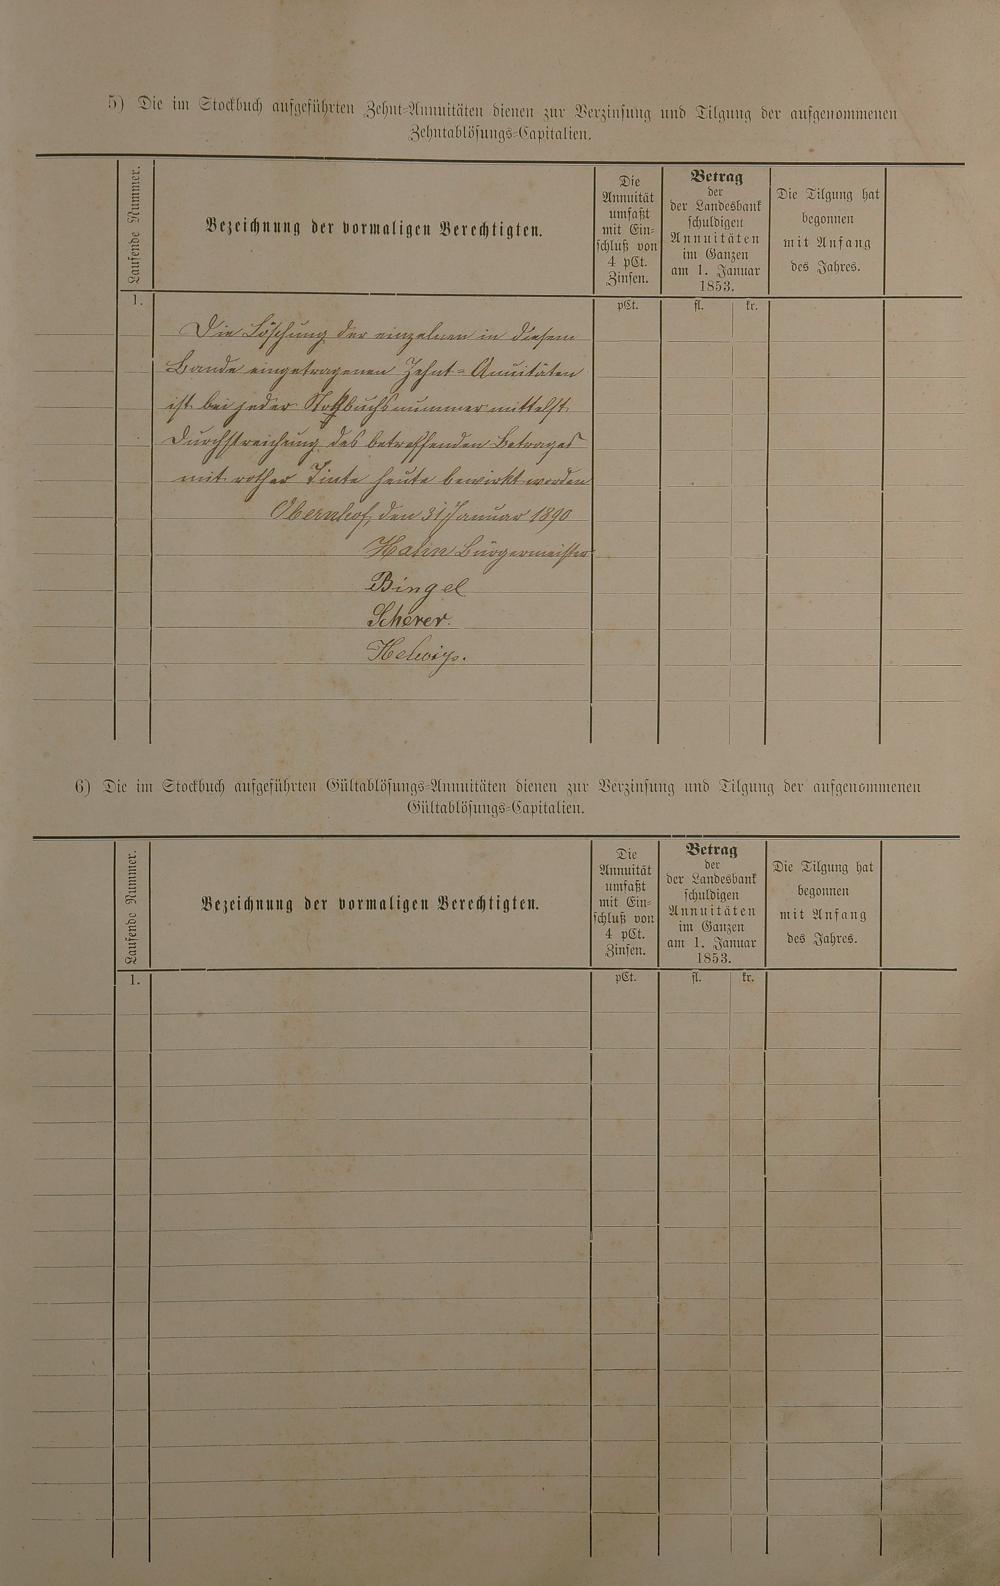 5) Die im Stockbuch aufgeführten Zehnt-Annuitäten dienen zur Verzinsung und Tilgung der aufgenommenen
Zehntablösungs-Capitalien.
Laufende Nummer.
Bezeichnung der vormaligen Berechtigten.
Die
Annuität
umfaßt
mit Ein-
schluß von
4 pCt.
Zinsen.
Betrag
der
der Landesbank
schuldigen
Annuitäten
im Ganzen
am 1. Januar
1853.
Die Tilgung hat
begonnen
mit Anfang
des Jahres.
1.
pCt.
fl.
kr.
Die Löschung der einzelnen in diesem
Bande eingetragenen Zehnt-Anuitäten
ist bei jeder Stockbuchsnummer mittelst
Durchstreichung des betreffenden Betrages
mit rother Tinte heute bewirkt worden
Obernhof, den 31 Januar 1890
Bürgermeister
Bingel
Scherer.
6) Die im Stockbuch aufgeführten Gültablösungs-Annuitäten dienen zur Verzinsung und Tilgung der aufgenommenen
Gültablösungs-Capitalien.
Laufende Nummer.
Bezeichnung der vormaligen Berechtigten.
Die
Annuität
umfaßt
mit Ein-
schluß von
4 pCt.
Zinsen.
Betrag
der
der Landesbank
schuldigen
Annuitäten
im Ganzen
am 1. Januar
1853.
Die Tilgung hat
begonnen
mit Anfang
des Jahres.
1.
pCt.
fl.
kr.